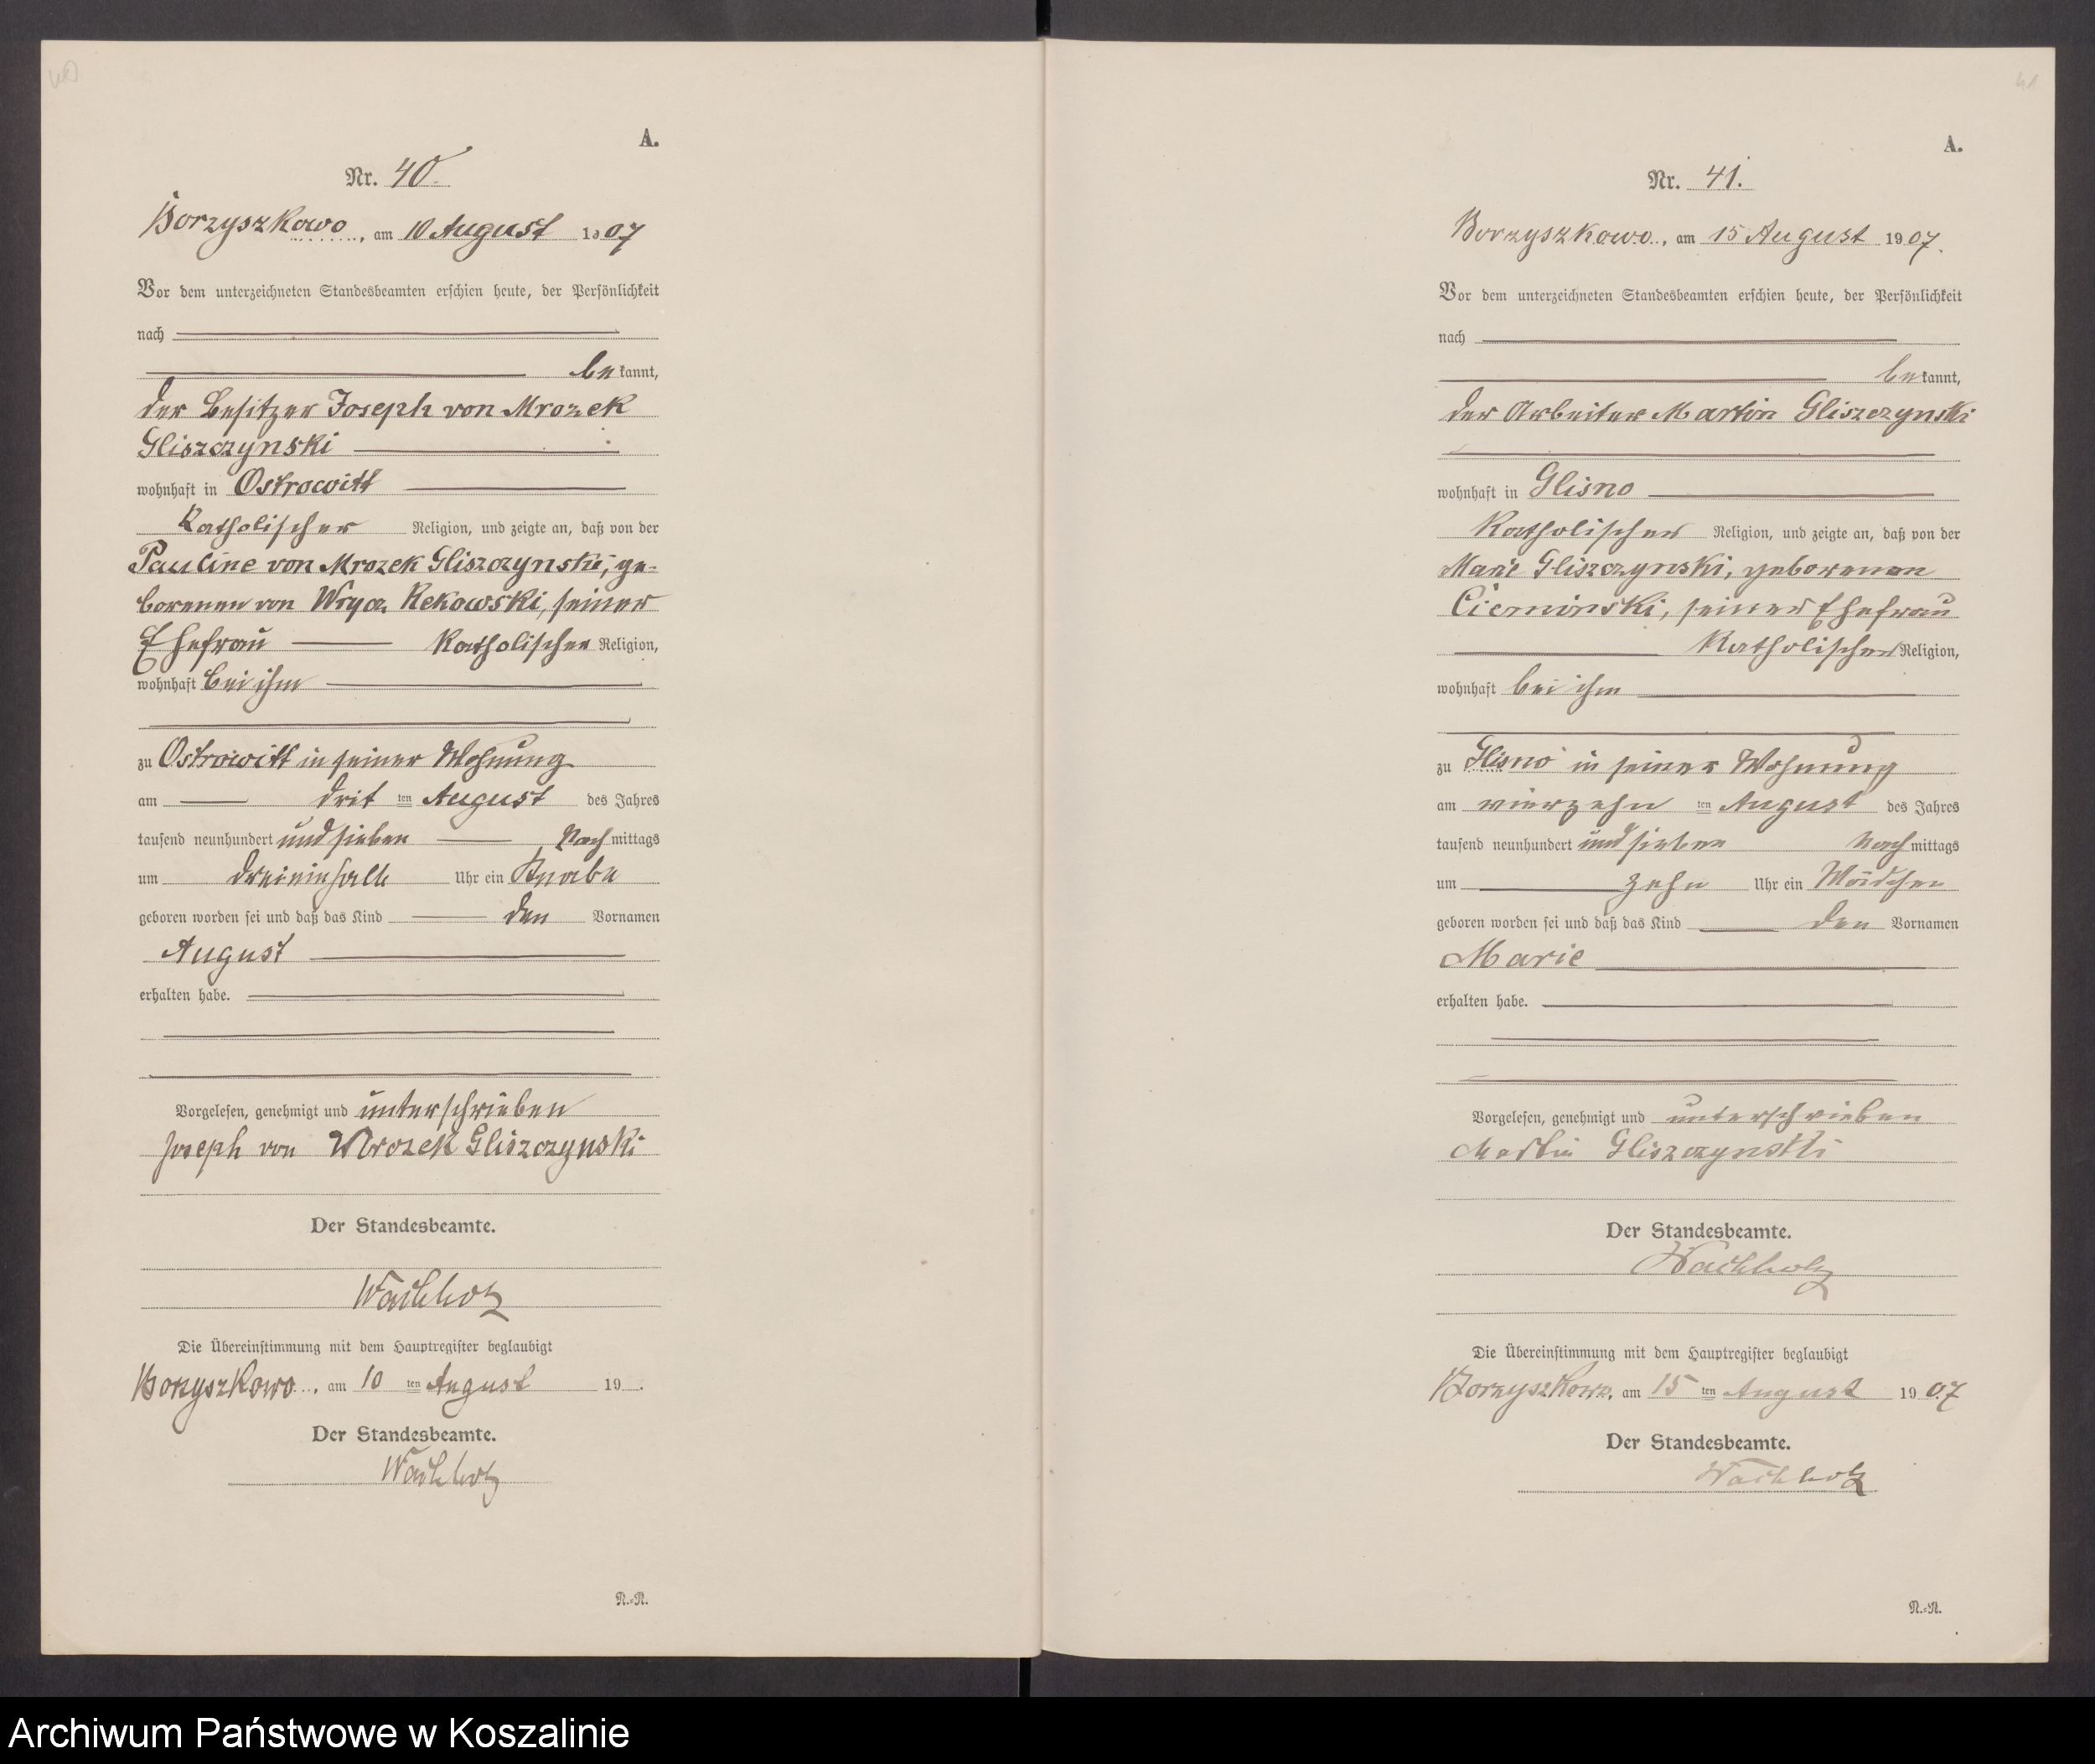 A.
Nr. 40.
Borzyszkowo, am 10 August 1907
Vor dem unterzeichneten Standesbeamten erschien heute, der Persönlichkeit
nach
bekannt,
der Besitzer Joseph von Mrozek
Gliszczynski
wohnhaft in Ostrowitt
Katholischer Religion, und zeigte an, daß von der
Pauline von Mrozek Gliszczynski, ge-
borenen von Wrycz Rekowski, seiner
Ehefrau Katholischer Religion,
wohnhaft bei ihm
zu Ostrowitt in seiner Wohnung
am drit ten August des Jahres
tausend neunhundert und sieben Nachmittags
um dreieinhalb Uhr ein Knabe
geboren worden sei und daß das Kind den Vornamen
August
erhalten habe.
Vorgelesen, genehmigt und unterschrieben
Joseph von Mrozek Gliszczynski
Der Standesbeamte.
Wachholz
Die Übereinstimmung mit dem Hauptregister beglaubigt
Borzyszkowo, am 10 ten August 19 .
Der Standesbeamte.
Wachholz
R.=R.
A.
Nr. 41.
Borzyszkowo, am 15 August 1907.
Vor dem unterzeichneten Standesbeamten erschien heute, der Persönlichkeit
nach
bekannt,
der Arbeiter Martin Gliszczynski
wohnhaft in Glisno
Katholischer Religion, und zeigte an, daß von der
Marie Gliszczynski, geborenen
Cieminski, seiner Ehefrau
Katholischer Religion,
wohnhaft bei ihm
zu Glisno in seiner Wohnung
am vierzehn ten August des Jahres
tausend neunhundert und sieben Nachmittags
um zehn Uhr ein Mädchen
geboren worden sei und daß das Kind den Vornamen
Marie
erhalten habe.
Vorgelesen, genehmigt und unterschrieben
Martin Gliszczynski
Der Standesbeamte.
Wachholz
Die Übereinstimmung mit dem Hauptregister beglaubigt
Borzyszkowo, am 15 ten August 1907
Der Standesbeamte.
Wachholz
R.=R.
Archiwum Państwowe w Koszalinie